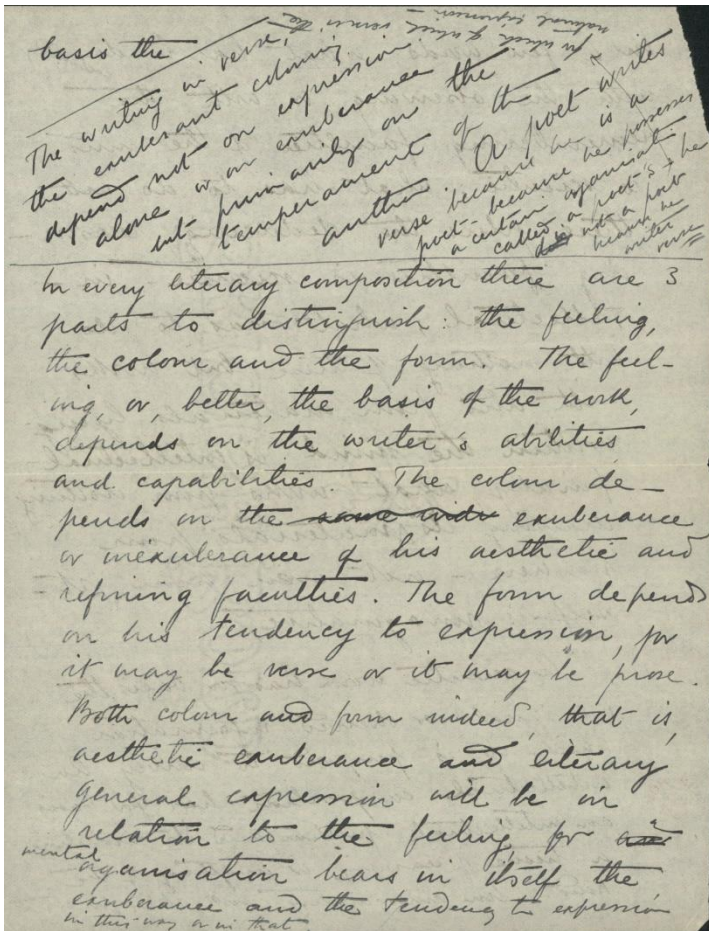 basis the
for which of which verse is the
natural expression —
The writing in verse,
the exuberant colouring
depend not on expression
alone or on exuberance
but primarily on the
temperament of the
author. A poet writes
verse because he is a
poet - because he possesses
a certain organisation
called a poet's; he
is not a poet
because he
writes
verse
In every literary composition there are 3
parts to distinguish: the feeling,
the colour and the form. The feel-
ing, or, better, the basis of the work,
depends on the writer's abilities
and capabilities. The colour de-
pends on the same exuberance
or inexuberance of his aesthetic and
refining faculties. The form depends
on his tendency to expression, for
it may be verse or it may be prose.
Both colour and form indeed, that is,
aesthetic exuberance and literary
general expression will be in
relation to the feeling, for a
mental
organisation bears in itself the
exuberance and the tendency to expression
in this way or in that